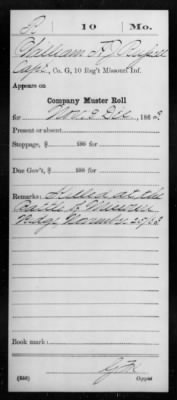 10 Mo.
William F.
Capt., Co. G, 10 Reg't Missouri Inf.
Appears on
Company Muster Roll
for Nov & Dec, 1863
Present or absent
Stoppage, $ 100 for
Due Gov't, $ 100 for
Remarks: Killed at the
battle of Mission
Ridge November 25/63
Book mark:
(356)
Copyist